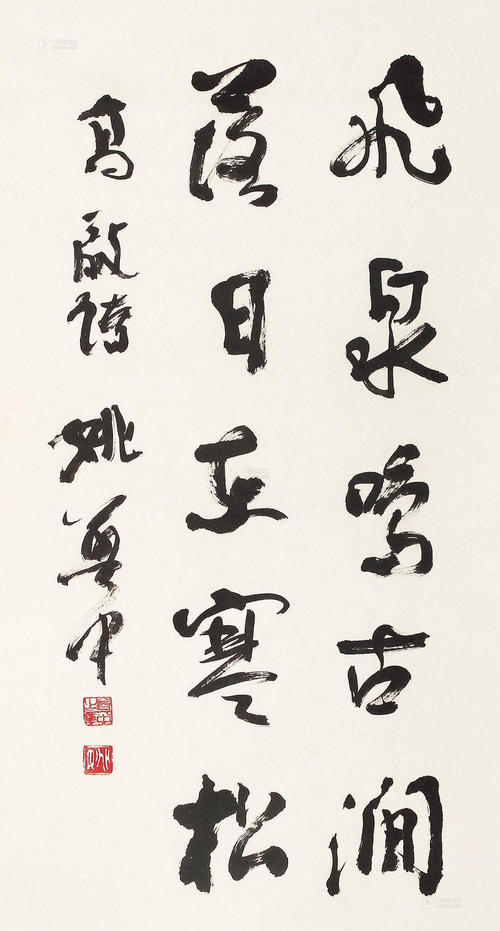 飛泉鳴古澗
落日在寒松
高啟詩 姚奠中